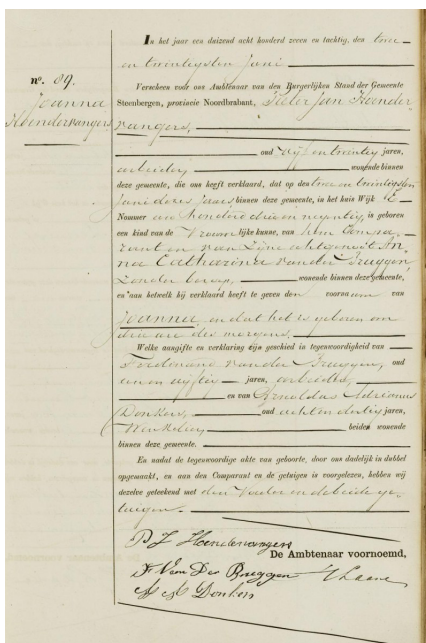 n°. 89.
Joanna
Hoendervangers
In het jaar een duizend acht honderd zeven en tachtig, den twee
en twintigsten Juni
Verscheen voor ons Ambtenaar van den Burgerlijken Stand der Gemeente
Steenbergen, provincie Noordbrabant, Pieter Jan Hoender-
vangers,
oud vijf en twintig jaren,
arbeider, wonende binnen
deze gemeente, die ons heeft verklaard, dat op den twee en twintigsten
juni dezes jaars binnen deze gemeente, in het huis Wijk E
Nommer een honderd drie en negentig, is geboren
een kind van de Vrouwelijke kunne, van hem Compa-
rant en van zijne echtgenoot An-
na Catharina van der Bruggen,
zonder beroep, wonende binnen deze gemeente,
en aan hetwelk hij verklaard heeft te geven den voornaam van
Joanna en dat het is geboren om
drie ure des morgens.
Welke aangifte en verklaring zijn geschied in tegenwoordigheid van
Ferdinand van der Bruggen, oud
een en vijftig jaren, arbeider,
en van Arnoldus Adrianus
Donkers, oud acht en dertig jaren,
Winkelier, beiden wonende
binnen deze gemeente.
En nadat de tegenwoordige akte van geboorte, door ons dadelijk in dubbel
opgemaakt, en aan den Comparant en de getuigen is voorgelezen, hebben wij
dezelve geteekend met den Vader en de beide ge-
tuigen.
P J Hoendervangers
De Ambtenaar voornoemd,
F. Van Der Bruggen
A A Donkers